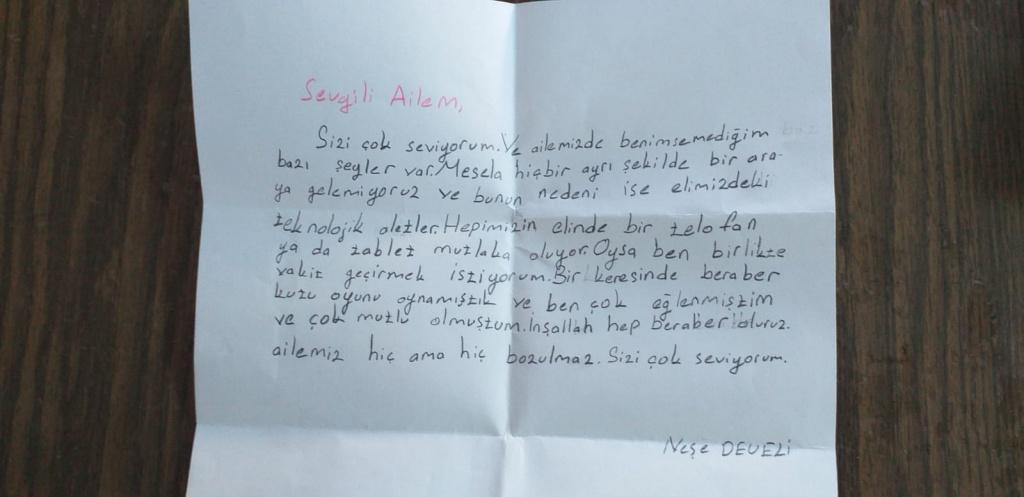 Sevgili Ailem,
Sizi çok seviyorum. Ve ailemizde benimsemediğim
bazı şeyler var. Mesela hiçbir ayrı şekilde bir ara-
ya gelemiyoruz ve bunun nedeni ise elimizdeki
teknolojik aletler. Hepimizin elinde bir telofan
ya da tablet mutlaka oluyor. Oysa ben birlikte
vakit geçirmek istiyorum. Bir keresinde beraber
kutu oyunu oynamıştık ve ben çok eğlenmiştim
ve çok mutlu olmuştum. İnşallah hep beraber oluruz.
ailemiz hiç ama hiç bozulmaz. Sizi çok seviyorum.
Neşe DEVELİ